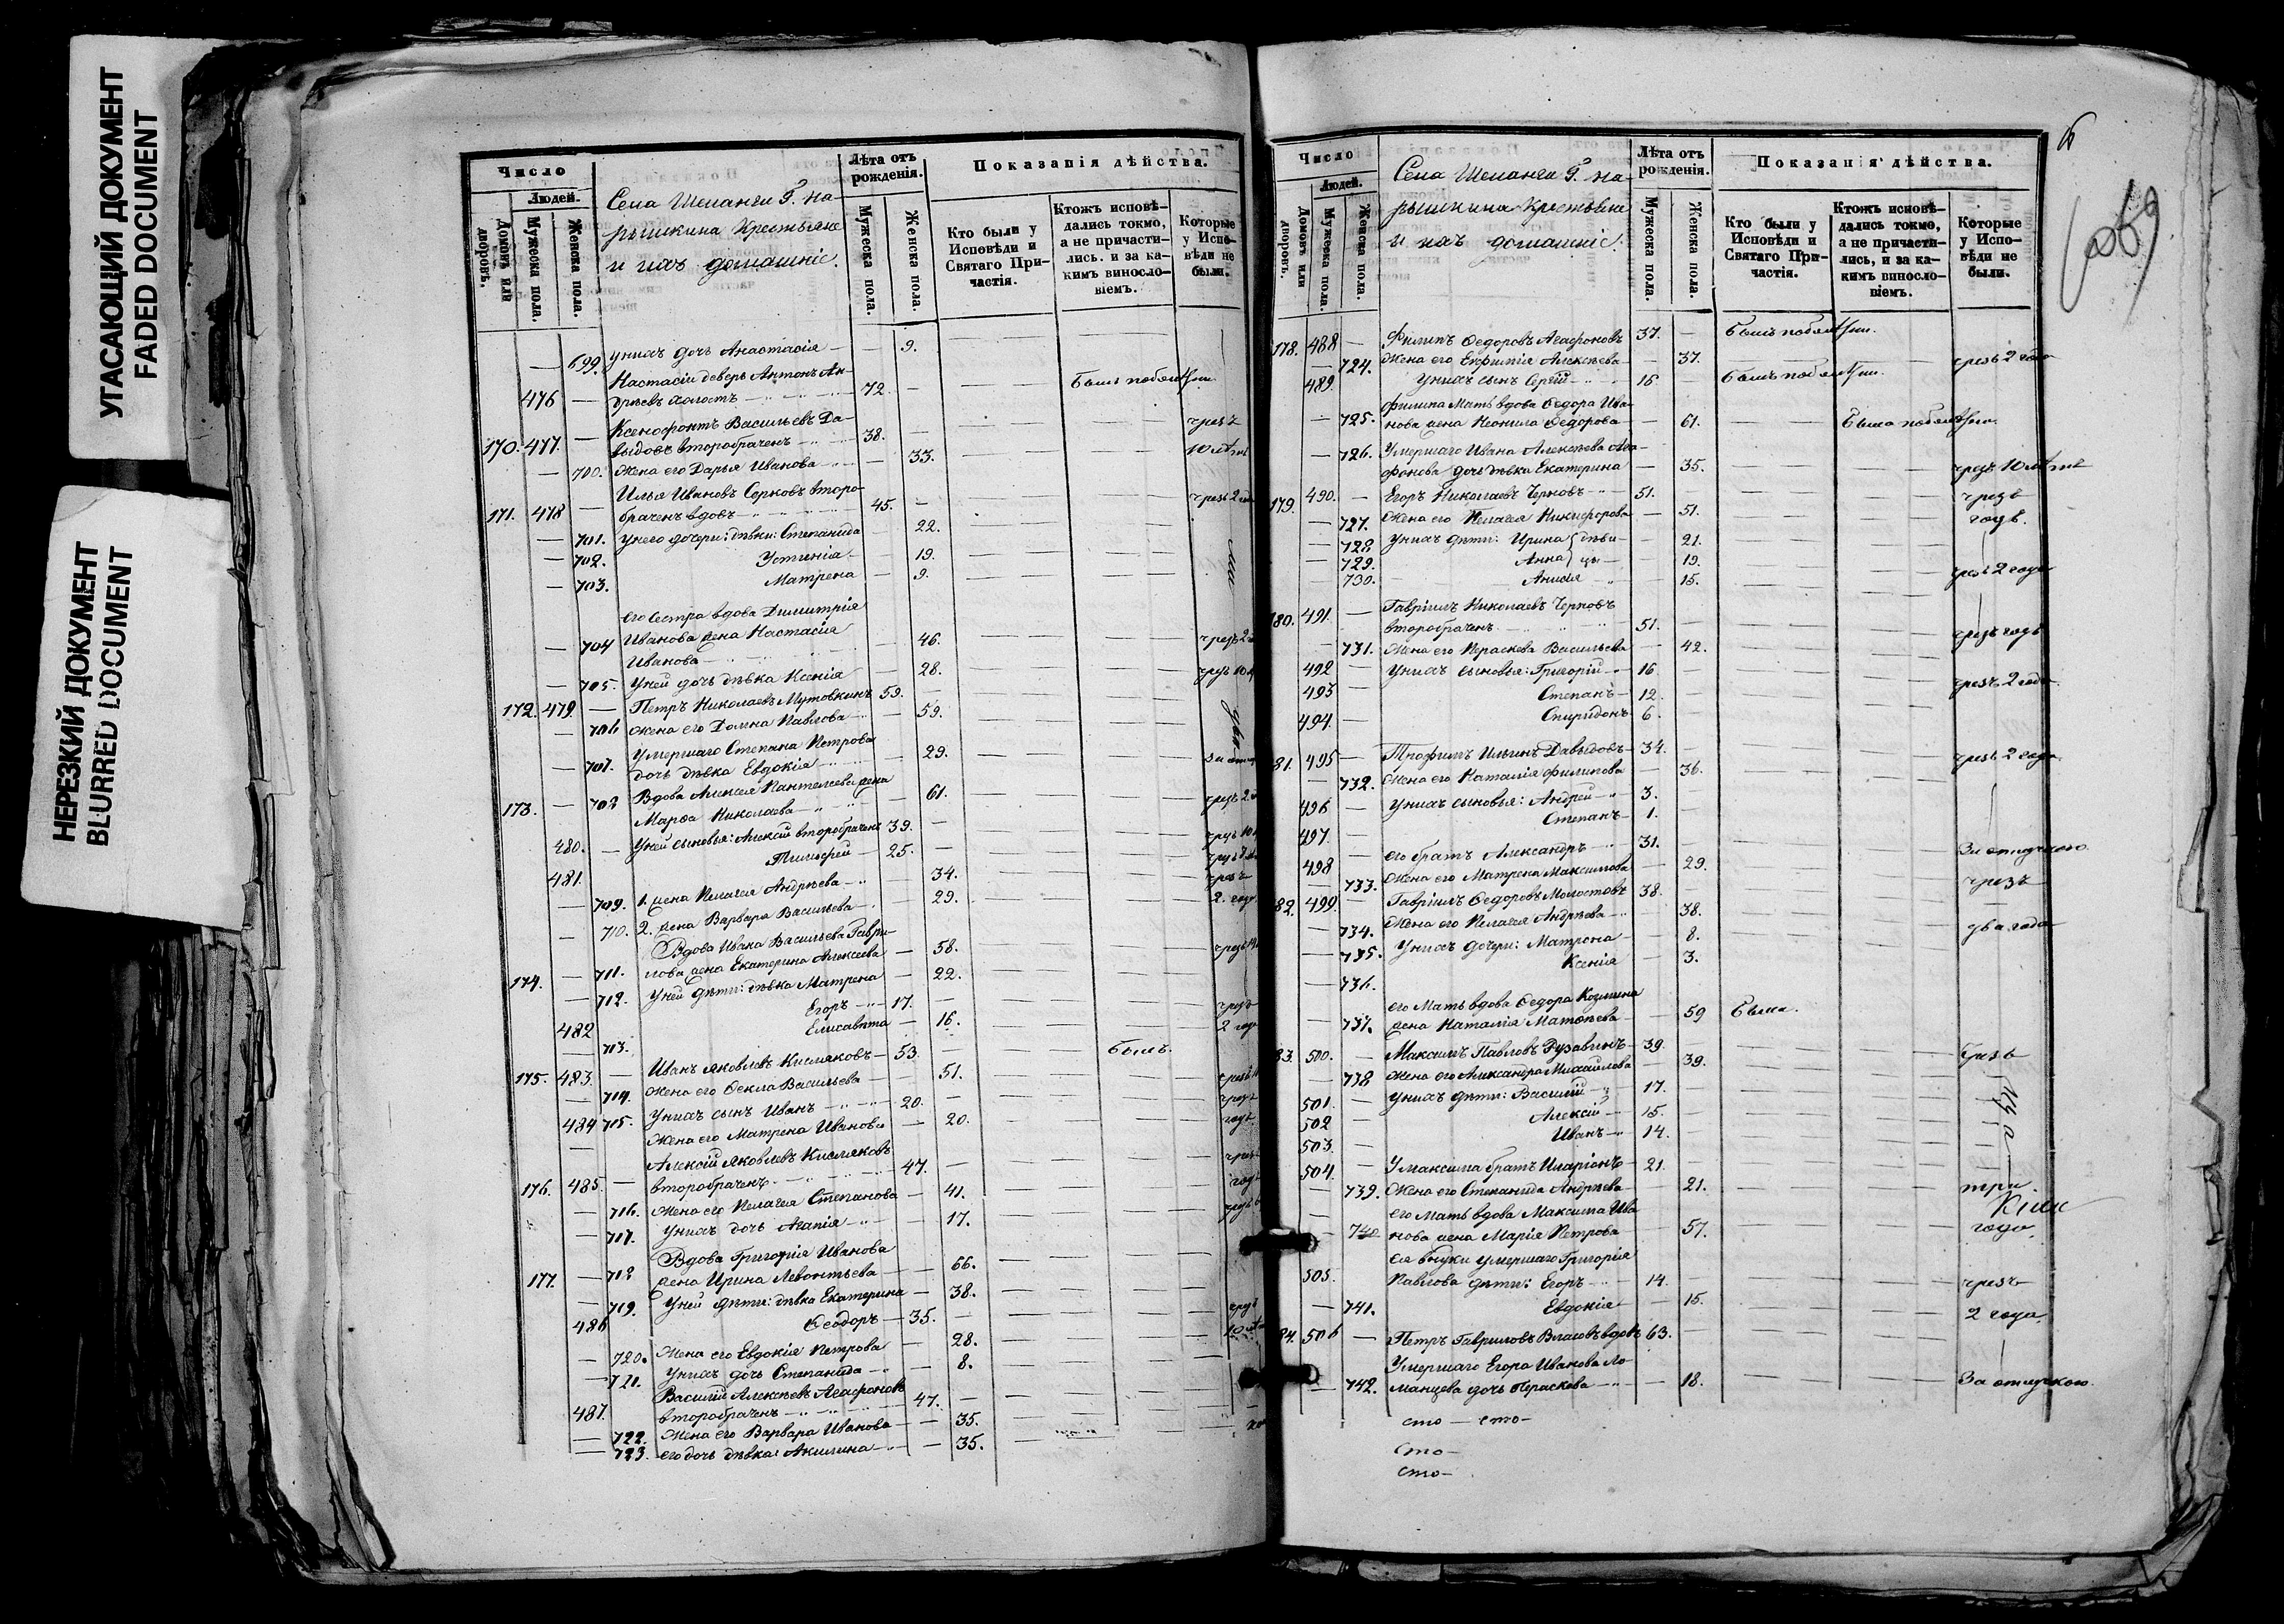 УГАСАЮЩИЙ ДОКУМЕНТ
FADED DOCUMENT
НЕРЕЗКИЙ ДОКУМЕНТ
BLURRED DOCUMENT
Число
Людей.
Домовъ или дворовъ.
Мужеска пола.
Женска пола.
Села Шеланги Г. На-
рышкина Крестьяне
и ихъ домашніе.
Лѣта отъ рожденія.
Мужеска пола.
Женска пола.
Показанія дѣйства.
Кто были у Исповѣди и Святаго При-частія.
Ктожъ исповѣ-дались токмо, а не причасти-лись. и за ка-кимъ винosло-віемъ.
Которые у Испо-вѣди не были.
— 699. у нихъ дочь Анастасія — 9.
Настасіи деверь Антонъ Ан-
476 — дреевъ холостъ — 72.
Ксенофонтъ Васильевъ Да-
170. 477. — выдовъ второбраченъ — 38. чрезъ
— 700. Жена его Дарья Иванова — 33. 10 лѣтъ
Илья Ивановъ Серковъ второ-
171. 478 — браченъ вдовъ — 45. чрезъ 2 года
— 701. у него дочери: дѣвки: Степанида — 22.
— 702. Устинія — 19.
— 703. Матрена — 9.
его Сестра вдова Димитрія
— 704 Иванова жена Настасія — 46.
Иванова
— 705. у ней дочь дѣвка Ксенія — 28.
172. 479. — Петръ Николаевъ Мутовкинъ 59.
— 706 жена его Домна Павлова — 59.
Умершаго Степана Петрова
— 707. дочь дѣвка Евдокія — 29.
173. — 708 Вдова Алексея Пантелеева жена
Марѳа Николаева — 61.
480. — у ней сыновья: Алексѣй второбраченъ 39.
481. Тимоѳей — 25.
— 709. 1. жена Пелагея Андрѣева — 34.
— 710. 2. жена Варвара Васильева — 29.
Вдова Ивана Васильева Гаври-
174. — 711. лова жена Екатерина Алексеева — 58.
— 712. у ней дѣти: дѣвка Матрена — 22.
482 Егоръ — 17.
— 713. Елисавѣта — 16.
175. 483. — Иванъ Яковлевъ Кисляковъ — 53. былъ.
— 714. жена его Ѳекла Васильева — 51.
484 715. у нихъ сынъ Иванъ — 20.
Жена его Матрена Иванова — 20.
Алексѣй Яковлевъ Кисляковъ
176. 485. — второбраченъ — 47.
— 716. Жена его Пелагея Степанова — 41.
— 717. у нихъ дочь Агапія — 17.
Вдова Григорія Иванова
177. — 718 жена Ирина Левонтьева — 66.
— 719. у ней дѣти: дѣвка Екатерина — 38.
486 Ѳеодоръ — 35.
— 720. Жена его Евдокія Петрова — 28.
— 721. у нихъ дочь Степанида — 8.
Василій Алексѣевъ Агафоновъ
487. второбраченъ — 47.
— 722. Жена его Варвара Иванова — 35.
— 723. его дочь дѣвка: Акилина — 35.
Число
Людей.
Домовъ или дворовъ.
Мужеска пола.
Женска пола.
Села Шеланги Г. На-
рышкина Крестьяне
и ихъ домашніе.
Лѣта отъ рожденія.
Мужеска пола.
Женска пола.
Показанія дѣйства.
Кто были у Исповѣди и Святаго При-частія.
Ктожъ исповѣ-дались токмо, а не причасти-лись, и за ка-кимъ винosло-віемъ.
Которые у Испо-вѣди не были.
069
178. 488 — Филипъ Ѳедоровъ Агафоновъ 37.
— 724. Жена его Евфимія Алексѣева — 37. чрезъ 2 года
489. у нихъ сынъ Сергѣй — 16
Филипа Мать вдова Ѳедора Ива-
— 725. нова жена Неонила Ѳедорова — 61.
— 726. Умершаго Ивана Алексѣева Ага-
фонова дочь дѣвка Екатерина — 35. чрезъ 10 лѣтъ
179. 490. — Егоръ Николаевъ Черновъ — 51. чрезъ
— 727. Жена его Пелагея Никифорова — 51. годъ.
— 728 у нихъ дѣти: Ирина дѣви- — 21.
— 729. Анна цы — 19.
730. — Анисья — 15. чрезъ 2 года
180. 491. — Гавріилъ Николаевъ Черновъ
второбраченъ — 51.
— 731. Жена его Параскева Васильева — 42. чрезъ годъ
492 — у нихъ сыновья: Григорій — 16
493 — Степанъ — 12. чрезъ 2 года
494. — Спиридонъ 6.
81. 495 — Трофимъ Ильинъ Давыдовъ — 34.
— 732. Жена его Наталія Филипова — 36. чрезъ 2 года
496 — у нихъ сыновья: Андрей — 3.
497 — Степанъ — 1.
498 — его братъ Александръ — 31. За отлучкою
— 733. Жена его Матрена Максимова — 29.
82. 499. — Гавріилъ Ѳедоровъ Молостовъ 38. чрезъ
— 734. Жена его Пелагея Андрѣева — 38.
— 735. у нихъ дочери: Матрона — 8. два года
— 736. Ксенія — 3.
его Мать вдова Ѳедора Козмина
— 737. жена Наталія Матвѣева — 59 Была.
83. 500. — Максимъ Павловъ Рузавинъ — 39. Чрезъ
— 738 Жена его Александра Михайлова — 39.
501. — у нихъ дѣти: Василій — 17.
502 Алексѣй — 15.
503. Иванъ — 14.
504. — У Максима братъ Иларіонъ — 21.
— 739. Жена его Степанида Андрѣева — 21. три
его Мать вдова Максима Ива
— 740 нова жена Марія Петрова — 57. года
ея внуки умершаго Григорія
505. Павлова дѣти: Егоръ — 14. чрезъ
— 741. Евдокія — 15. 2 года
84. 506 — Петръ Гавриловъ Власовъ вдовъ 63.
Умершаго Егора Иванова Ло-
— 742. манцева дочь Параскева — 18. За отлучкою.
сто — сто —
сто —
сто —